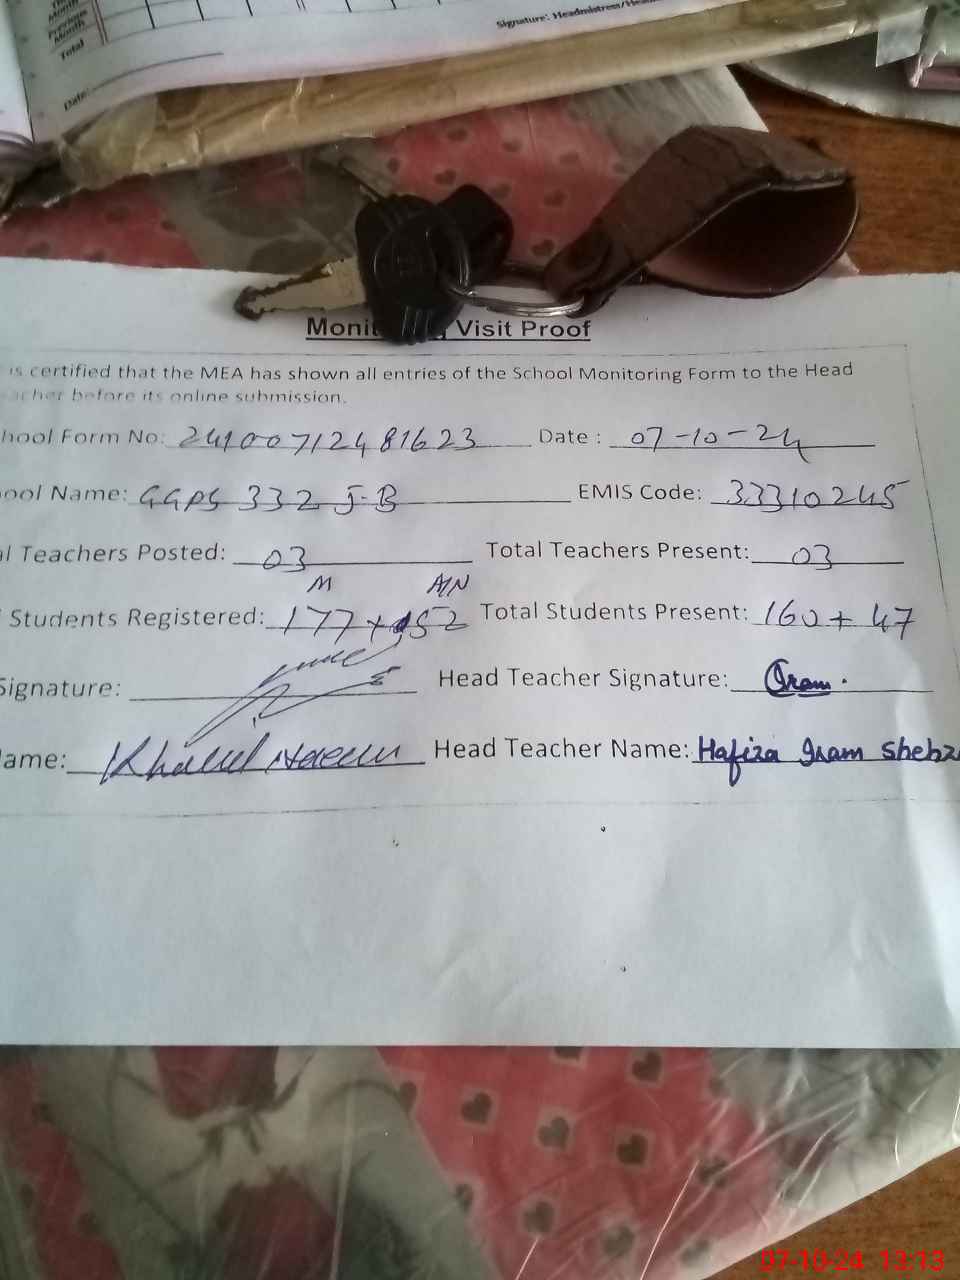 Month
Previous
Month
Total
Date:
Signature: Headmistress/
Monit g Visit Proof
is certified that the MEA has shown all entries of the School Monitoring Form to the Head
acher before its online submission.
hool Form No: 241007124 81623 Date : 07-10-24
ool Name: GGPS 332 J-B EMIS Code: 33310245
al Teachers Posted: 03 Total Teachers Present: 03
M
Students Registered: 177+ 52 Total Students Present: 160+47
Signature: Head Teacher Signature: Iram.
ame: Head Teacher Name: Hafiza Iram Shehz
07-10-24 13:13